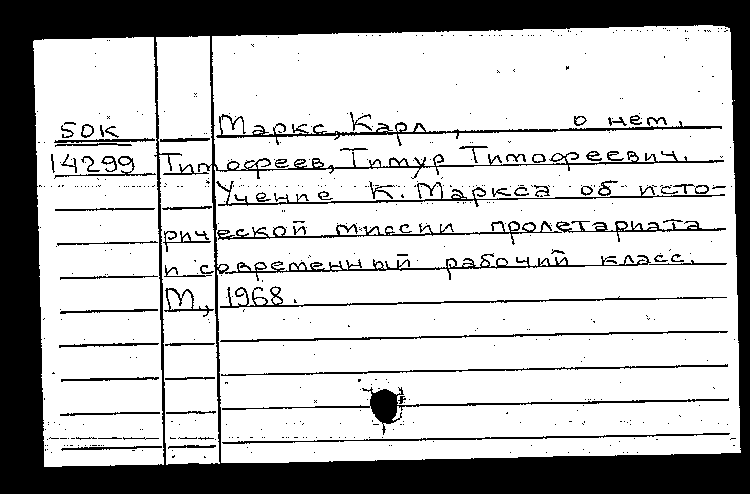 50К Маркс, Карл , о нем.
14299 Тимофеев, Тимур Тимофеевич.
Учение К. Маркса об исто-
рической миссии пролетариата
и современный рабочий класс.
М., 1968.